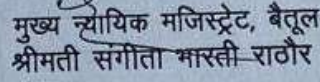 मुख्य न्यायिक मजिस्ट्रेट, बैतूल
श्रीमती संगीता भारती राठौर